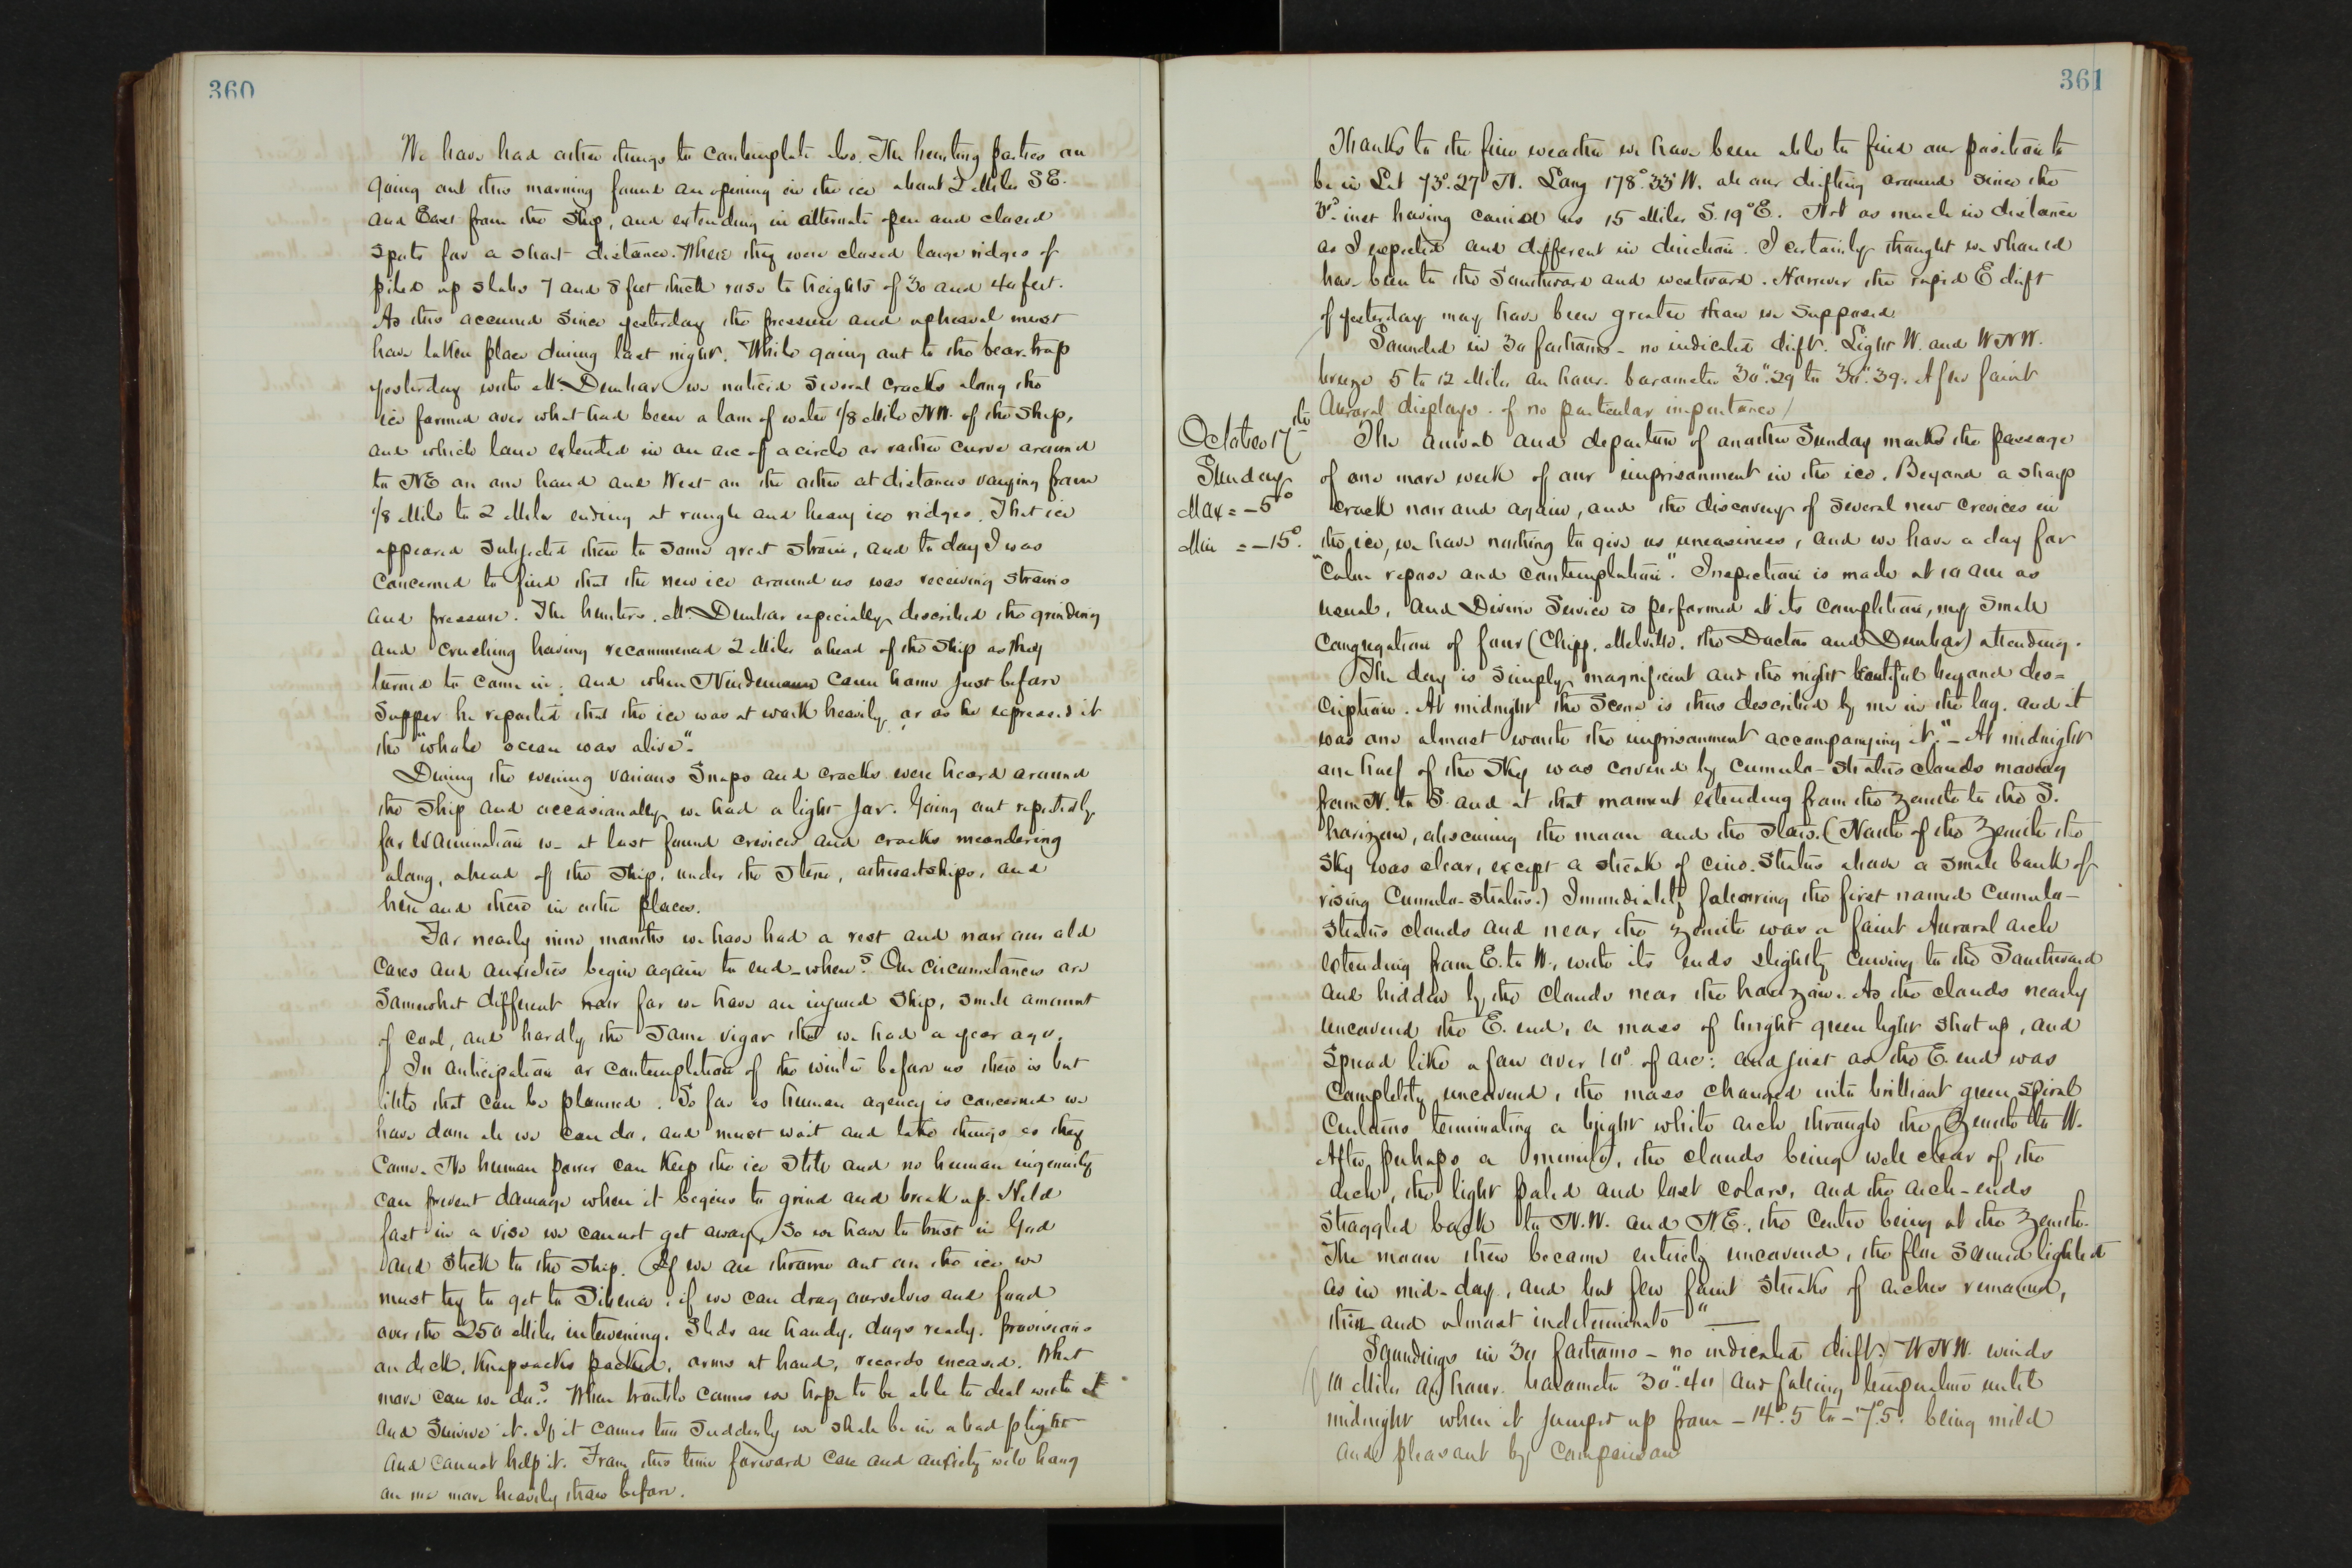 360
We have had other things to contemplate also. The hunting parties on
going out this morning found an opening in the ice about 2 Miles SE.
and East from the Ship, and extending in alternate open and closed
spots for a short distance. Where they were closed large ridges of
piled up slabs 7 and 8 feet thick rose to heights of 30 and 40 feet.
As this occurred since yesterday the pressure and upheaval must
have taken place during last night. While going out to the bear-trap
yesterday with Mr. Dunbar we noticed several cracks along the
ice formed over what had been a lane of water 1/8 Mile NW. of the Ship,
and which lane extended in an arc of a circle or rather curve around
to NE on one hand and West on the other at distances varying from
1/8 Mile to 2 Miles ending at rough and heavy ice ridges. That ice
appeared subjected then to some great strain, and to day I was
concerned to find that the new ice around us was receiving strains
and pressure. The hunters, Mr. Dunbar especially, described the grinding
and crushing having recommenced 2 Miles ahead of the Ship as they
turned to come in; and when Nindemann came home just before
Supper he reported that the ice was at work heavily, or as he expressed it
the "whole ocean was alive".
During the evening various Snaps and cracks were heard around
the Ship and occasionally we had a light jar. Going out repeatedly
for examination we at last found crevices and cracks meandering
along, ahead of the Ship, under the Stern, athwartships, and
here and there in other places.
For nearly nine months we have had a rest and now our old
Cares and anxieties begin again to end - when? Our circumstances are
Somewhat different now for we have an injured Ship, small amount
of coal, and hardly the same vigor that we had a year ago.
In anticipation or contemplation of the winter before us there is but
little that can be planned. So far as human agency is concerned we
have done all we can do, and must wait and take things as they
Come. No human power can Keep the ice Still and no human ingenuity
can prevent damage when it begins to grind and break up. Held
fast in a vise we cannot get away, So we have to trust in God
and Stick to the Ship. If we are thrown out on the ice we
must try to get to Siberia, if we can drag ourselves and food
over the 250 Miles intervening. Sleds are handy, dogs ready, provisions
on deck, Knapsacks packed, arms at hand, records encased. What
more can we do? When trouble comes we hope to be able to deal with it
and Survive it. If it comes too Suddenly we shall be in a bad plight
and cannot help it. From this time forward Care and anxiety will hang
on me more heavily than before.
361
Thanks to the fine weather we have been able to find our position to
be in Lat 73°.27' N. Long 178°.33' W. all our drifting around since the
3rd inst having carried us 15 Miles S. 19° E. Not as much in distance
as I expected and different in direction. I certainly thought we should
have been to the Southward and westward. However the rapid E drift
of yesterday may have been greater than we supposed.
Sounded in 30 fathoms - no indicated drift. Light W. and WNW.
breeze 5 to 12 Miles an hour. barometer 30".29 to 30".39. A few faint
Auroral displays of no particular importance/
October 17th
Sunday
Max = -5°
Min = -15°.
The arrival and departure of another Sunday marks the passage
of one more week of our imprisonment in the ice. Beyond a sharp
crack now and again, and the discovery of several new crevices in
the ice, we have nothing to give us uneasiness, and we have a day for
"Calm repose and contemplation". Inspection is made at 10 am as
usual, and Divine Service is performed at its completion, my small
congregation of four (Chipp, Melville, the Doctor and Dunbar) attending.
The day is simply magnificent and the night beautiful beyond des=
cription. At midnight the Scene is thus described by me in the log, and it
was one almost worth the imprisonment accompanying it. "- At midnight
one half of the Sky was covered by Cumulo-stratus clouds moving
from N. to S. and at that moment extending from the zenith to the S.
horizon, obscuring the moon and the stars. (North of the Zenith the
Sky was clear, except a streak of cirro. Stratus above a small bank of
rising Cumulo-stratus.) Immediately following the first named Cumulo-
Stratus clouds and near the zenith was a faint Auroral arch
extending from E. to W., with its ends slightly curving to the Southward
and hidden by the clouds near the horizon. As the clouds nearly
uncovered the E. end, a mass of bright green light shot up, and
Spread like a fan over 10° of arc: and just as the E. end was
Completely uncovered, the mass changed into brilliant green Spiral
Curtains terminating a bright white arch through the Zenith to W.
After perhaps a minute, the clouds being well clear of the
arch, the light paled and lost colors, and the arch-ends
straggled back to N.W. and N.E., the Centre being at the Zenith.
The moon then became entirely uncovered, the floe Seemed lighted
as in mid-day, and but few faint streaks of arches remained,
thin and almost indeterminate" —
Soundings in 30 fathoms - no indicated drift. WNW. winds
10 Miles an hour. barometer 30".40 and falling temperature until
midnight when it jumped up from -14°.5 to -7°.5. being mild
and pleasant by comparison